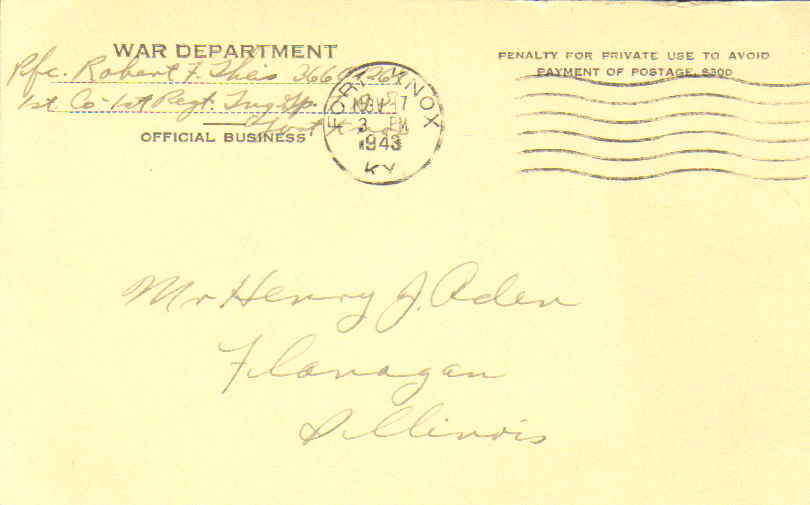 WAR DEPARTMENT
PENALTY FOR PRIVATE USE TO AVOID
PAYMENT OF POSTAGE, $300
Pfc. Robert F. Theis
1st Co. 1st Regt.
OFFICIAL BUSINESS
FORT KNOX
NOV
3 PM
1943
KY.
Mr Henry J. Aden
Flanagan
Illinois